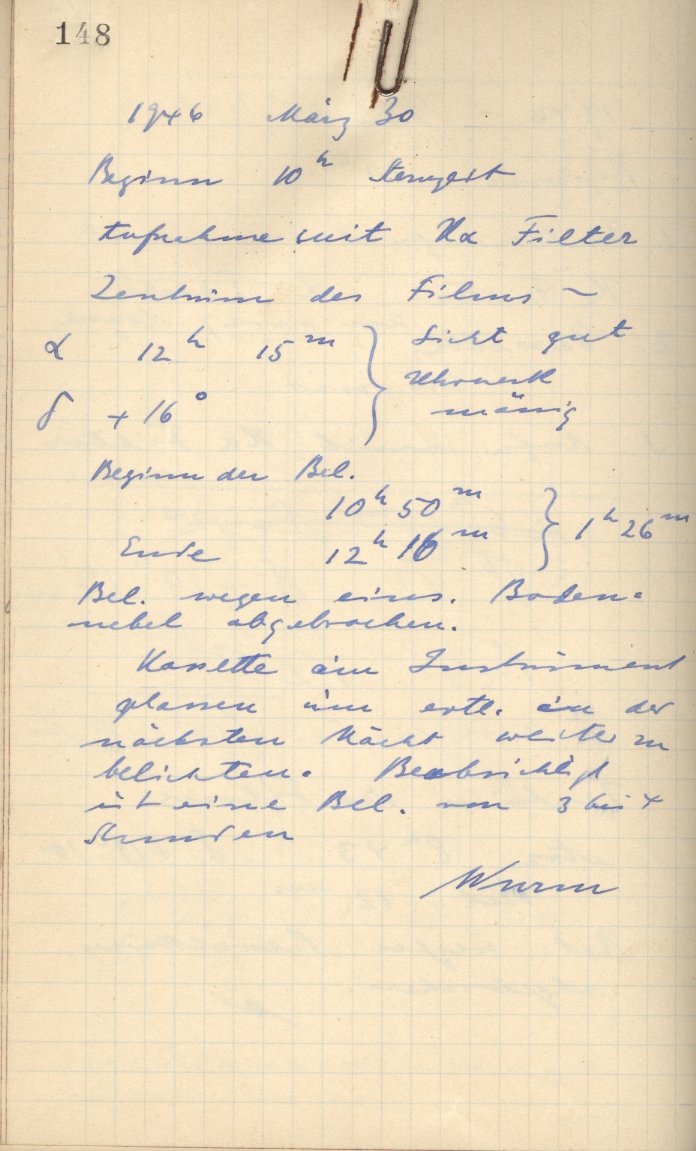 148
1946 März 30
Beginn 10h Sternzeit
Aufnahme mit Hα Filter
Zentrum des Films ~
α 12h 15m } Sicht gut
Uhrwerk
δ +16° mässig
Beginn der Bel.
10h 50m } 1h 26m
Ende 12h 16m
Bel. wegen eins. Boden-
nebel abgebrochen.
Kassette am Instrument
gelassen um evtl. in der
nächsten Nacht weiter zu
belichten. Beabsichtigt
ist eine Bel. von 3 bis 4
Stunden
Wurm